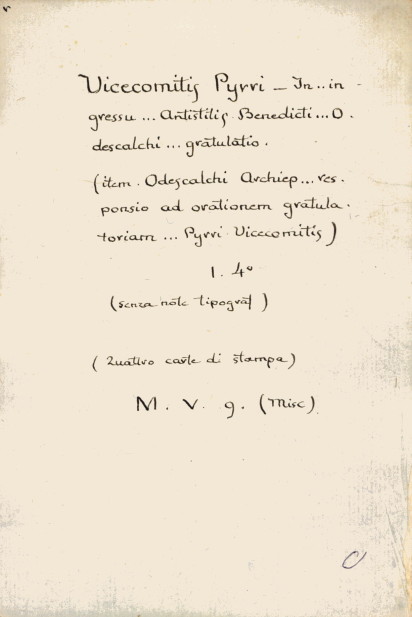 Vicecomitis Pyrri – In .. in-
gressu ... Antistitis Benedicti ... O.
descalchi ... gratulatio.
(item. Odescalchi Archiep ... res.
ponsio ad orationem gratula.
toriam ... Pyrri Vicecomitis)
1. 4°
(senza note tipograf)
(Quattro carte di stampa)
M. V. 9. (Misc)